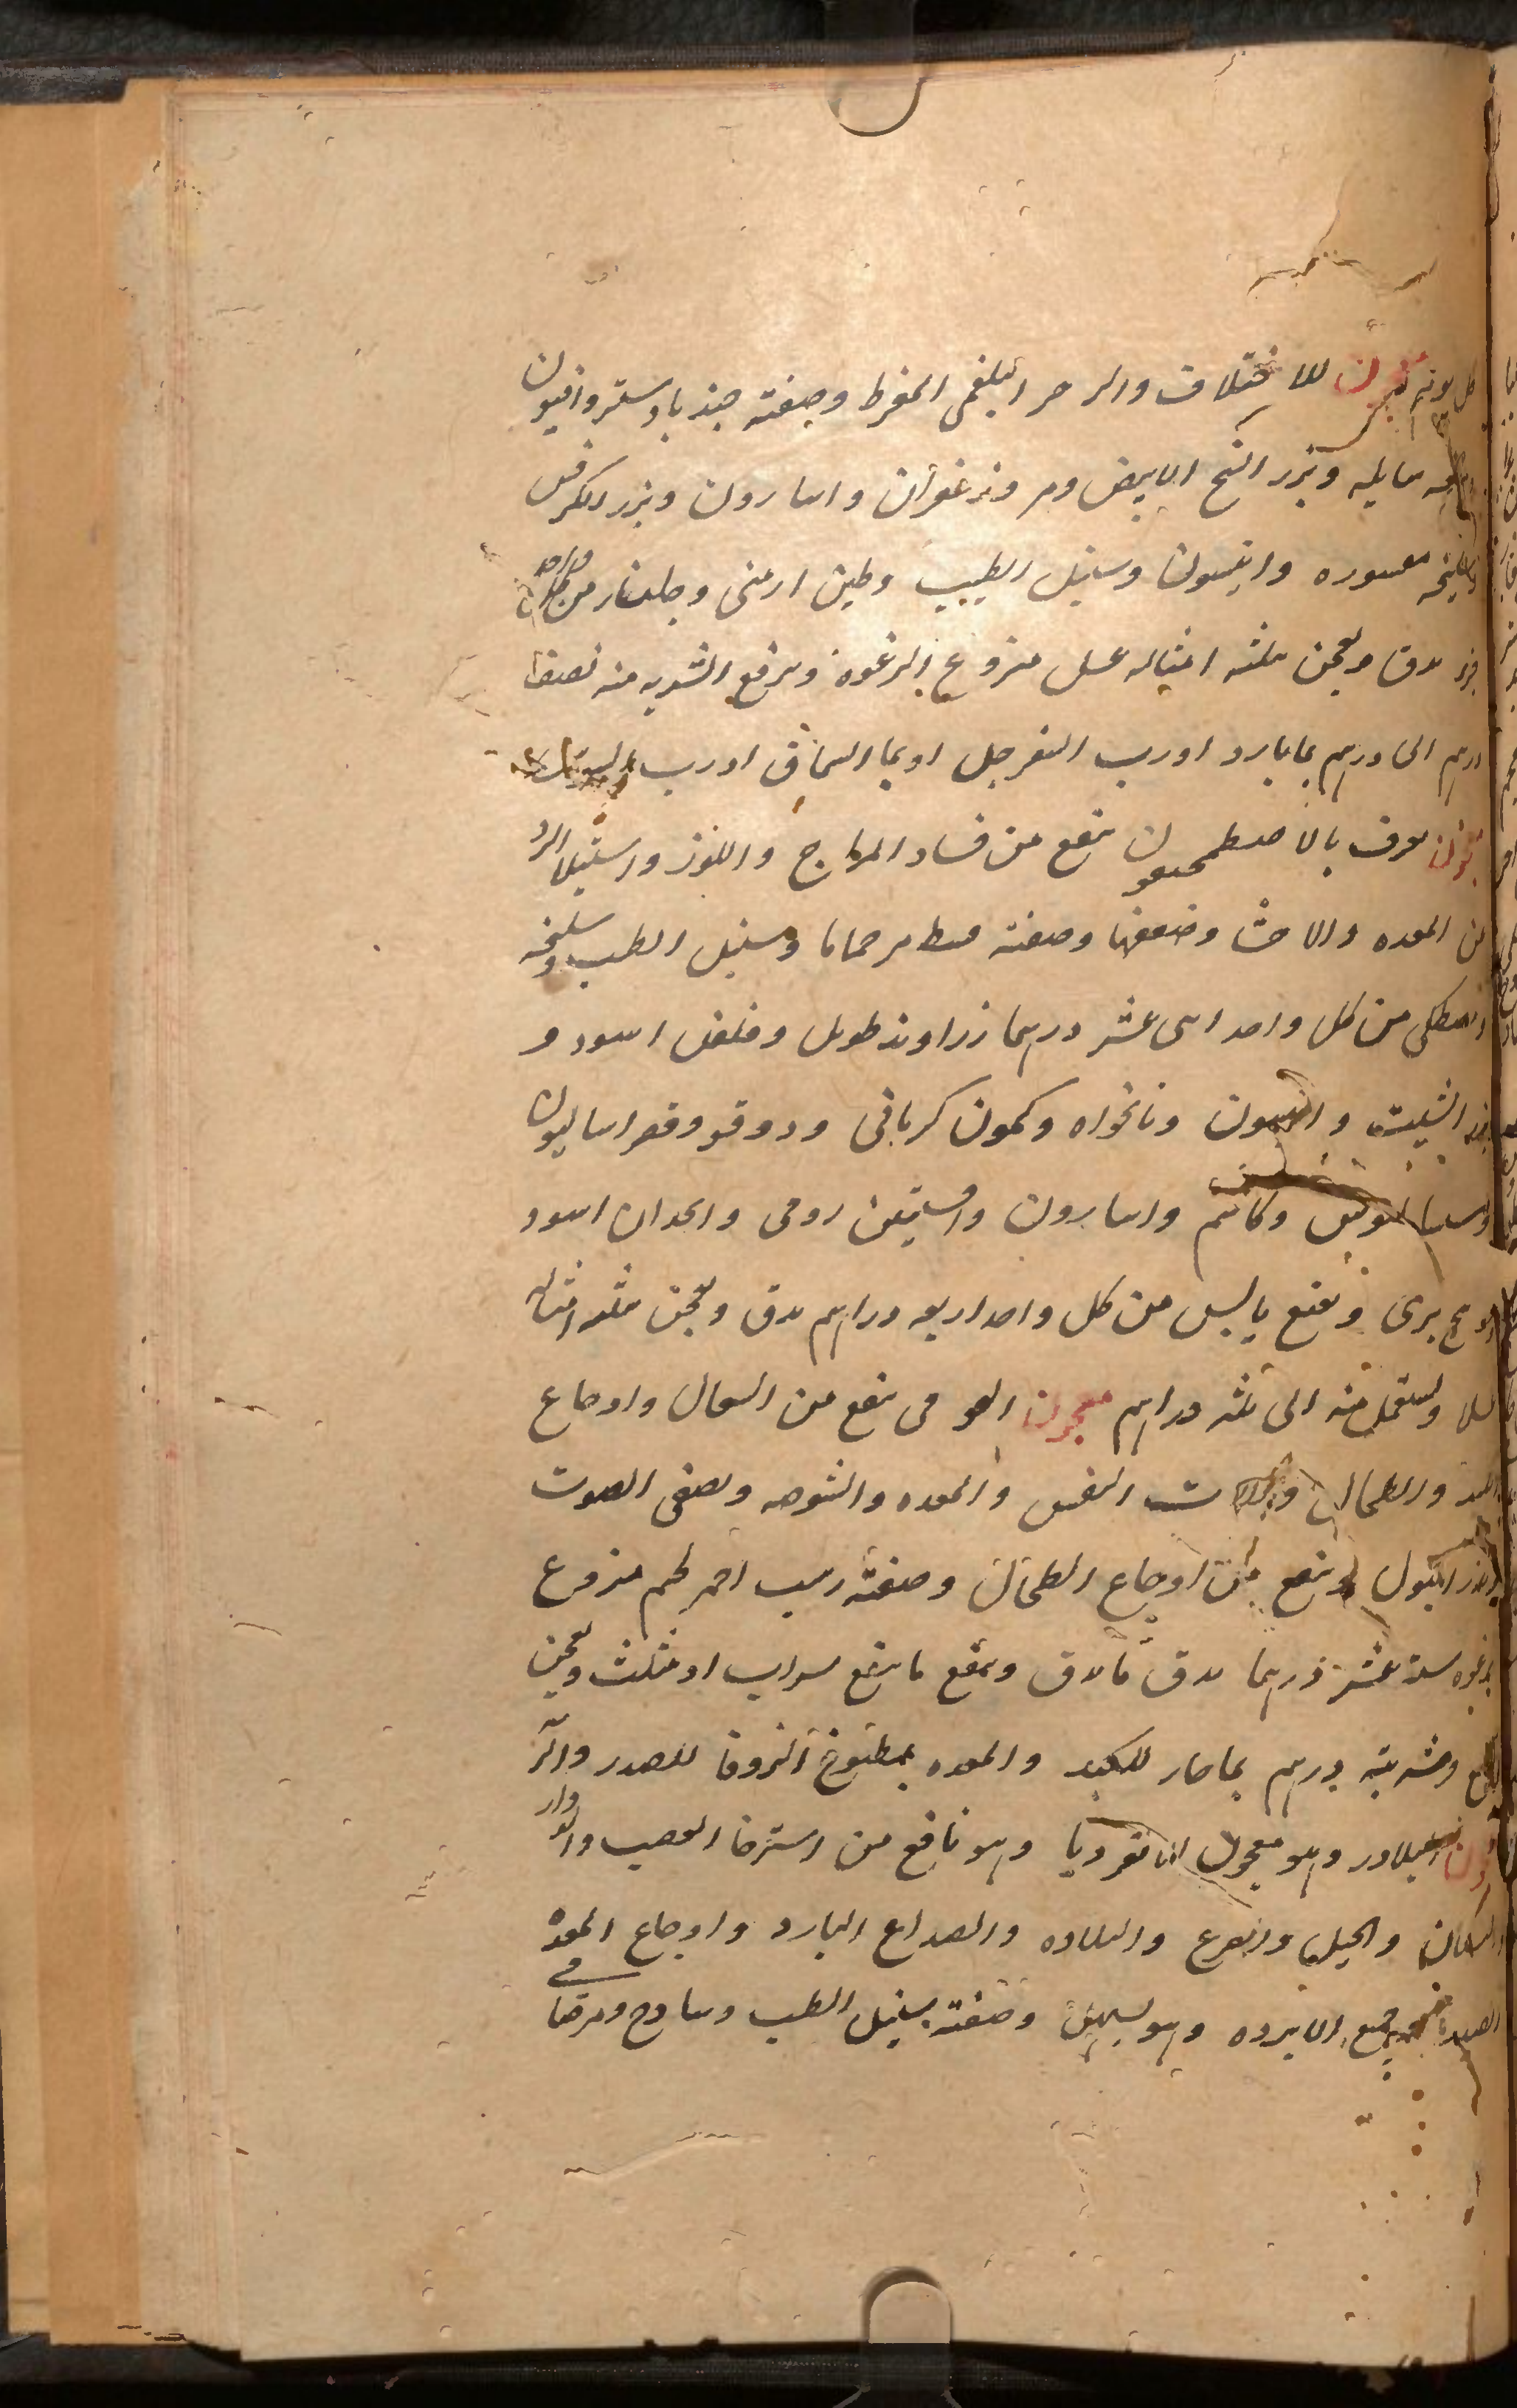 كل يوم معجون للاختلاف والزحير البلغمى المفرط وصفته جندبادستر وافيون
وميعه سايله وبزر البنج الابيض ومر وزعفران واسارون وبزر الكرفس
وسليخه مقشوره وانيسون وسنبل الطيب وطين ارمنى وجلنار من كل واحد
جزء يدق ويعجن بثلثه امثاله عسل منزوع الرغوة ويرفع الشربه منه نصف
درهم الى درهم بماء بارد او رب السفرجل او بماء السماق او رب
معجون يعرف بالاصطمحيقون ينفع من فساد المزاج واللون واستيلا البرد
من المعده والاحشا وضعفها وصفته قسط مر حماما وسنبل الطيب وسليخه
ومصطكى من كل واحد اثنى عشر درهما زراوند طويل وفلفل اسود و
بزر الشبت وانيسون ونانخواه وكمون كرمانى ودوقو وفطراساليون
وسيساليوس وكاشم واسارون وافسنتين رومى وانجدان اسود
برى ونعنع يابس من كل واحد اربعه دراهم يدق ويعجن بثلثه امثاله
عسلا ويستعمل منه الى ثلثه دراهم معجون ينفع من السعال واوجاع
الكبد والطحال النفس والمعده والشوصه ويصفى الصوت
ويدر البول وينفع من اوجاع الطحال وصفته زبيب احمر لحم منزوع
سته عشر درهما يدق ما يدق وينقع ما ينقع بشراب او مثلث ويعجن
ويرفع وشربته درهم بماء حار للكبد والمعده بمطبوخ الزوفا للصدر
معجون البلادر وهو معجون انانقرديا وهو نافع من استرخا العصب والدوار
والنسيان والصرع والبلاده والصداع البارد واوجاع المعدة
وجميع الابرده وهو يسهل وصفته سنبل الطيب وساذج ومر صافى